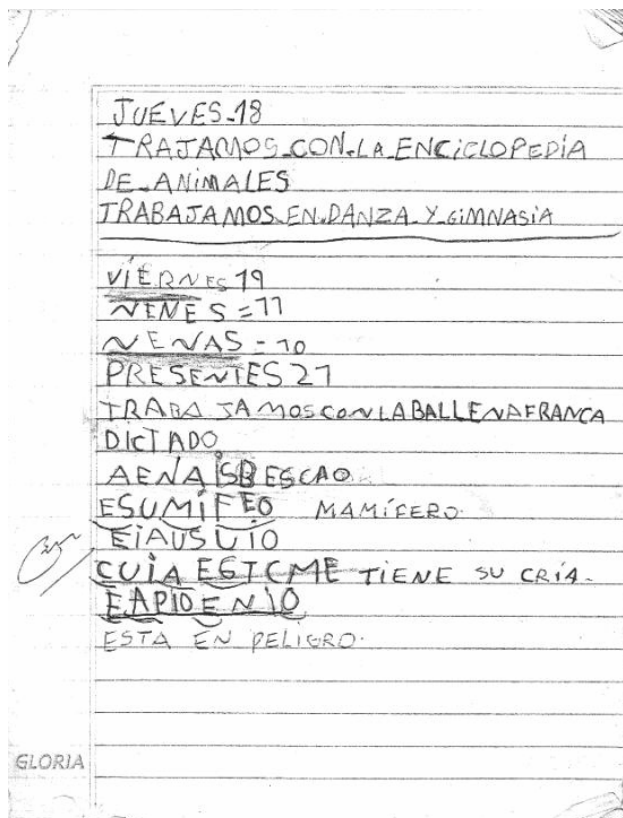 JUEVES-18
TRAJAMOS CON LA ENCICLOPEDIA
DE ANIMALES
TRABAJAMOS EN DANZA Y GIMNASIA
VIERNES 19
NENES = 11
NENAS = 10
PRESENTES 21
TRABAJAMOS CON LA BALLENA FRANCA
DICTADO
AENA SB ESCAO
ESUMÍFEO MAMÍFERO.
EIAUSUIO
CUIA ESTCME TIENE SU CRÍA.
EAPIOENIO
ESTA EN PELIGRO.
GLORIA